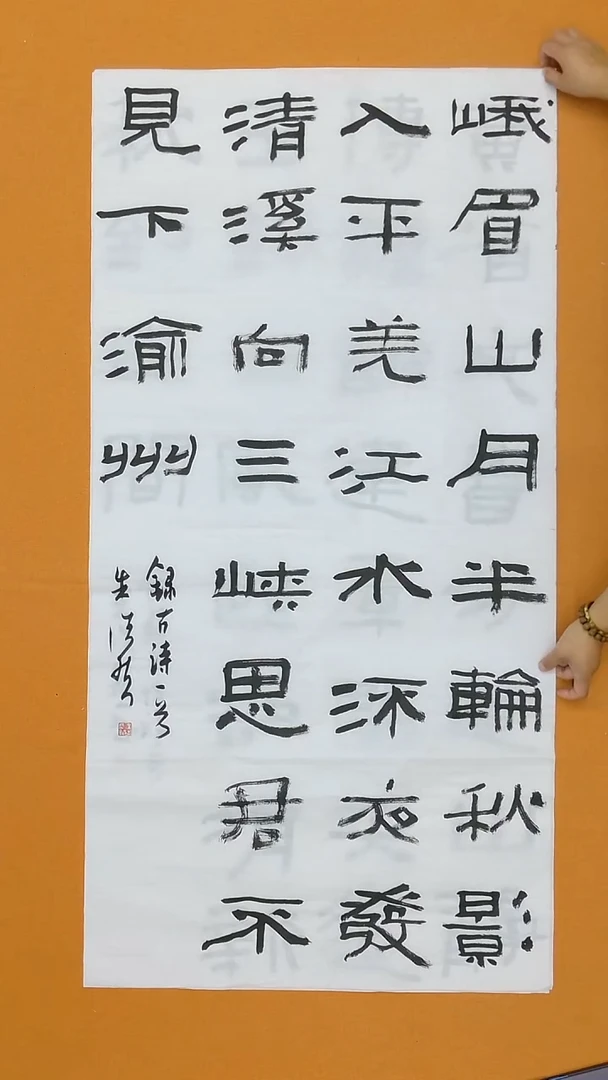 峨眉山月半輪秋影
入平羌江水流夜發
清溪向三峽思君不
見下渝州
錄古詩一首